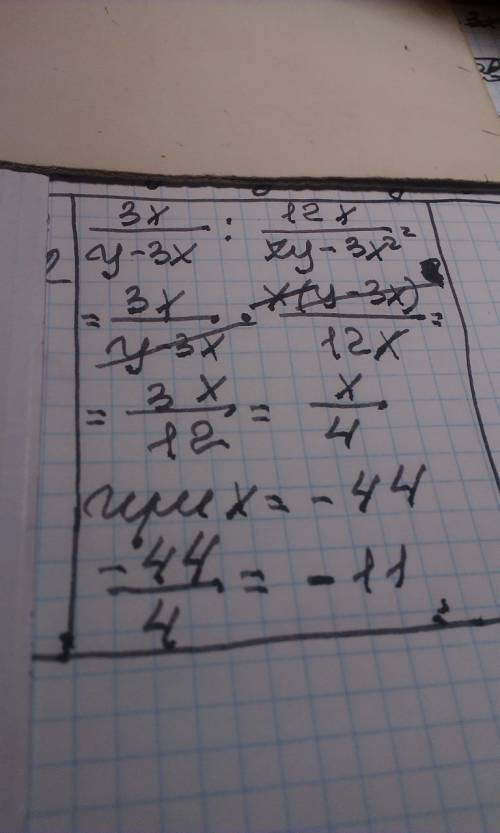 2
3x/(y-3x) : 12x/(xy-3x²)²
= 3x/(y-3x) · x(y-3x)/12x =
= 3x/12 = x/4
при x = -44
-44/4 = -11